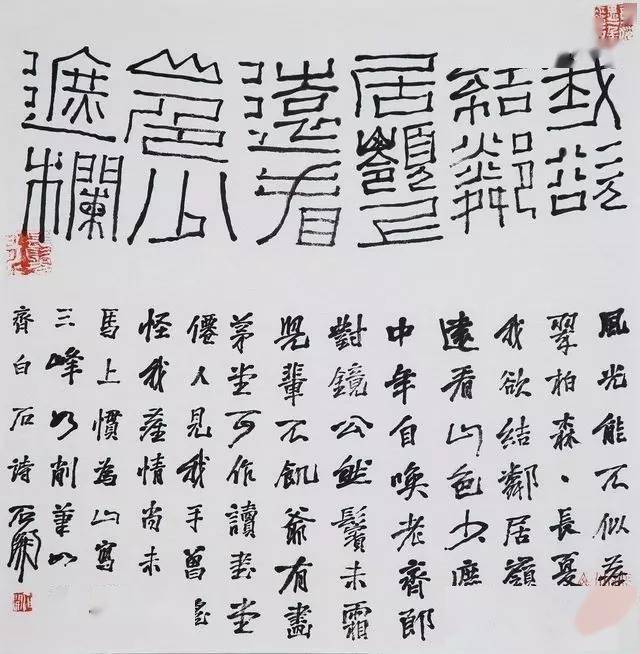 我欲
結鄰
居嶺上
遠看
山色少
遮欄
風光能不似
翠柏森、長夏
我欲結鄰居嶺
遠看山色少遮
中年自喚老齊郎
對鏡公然鬢未霜
兒輩不飢爺有畫
茅堂可作讀書堂
僊人見我手曾
怪我塵情尚未
馬上慣為山寫
三峰如削筆如
齊白石詩 石開